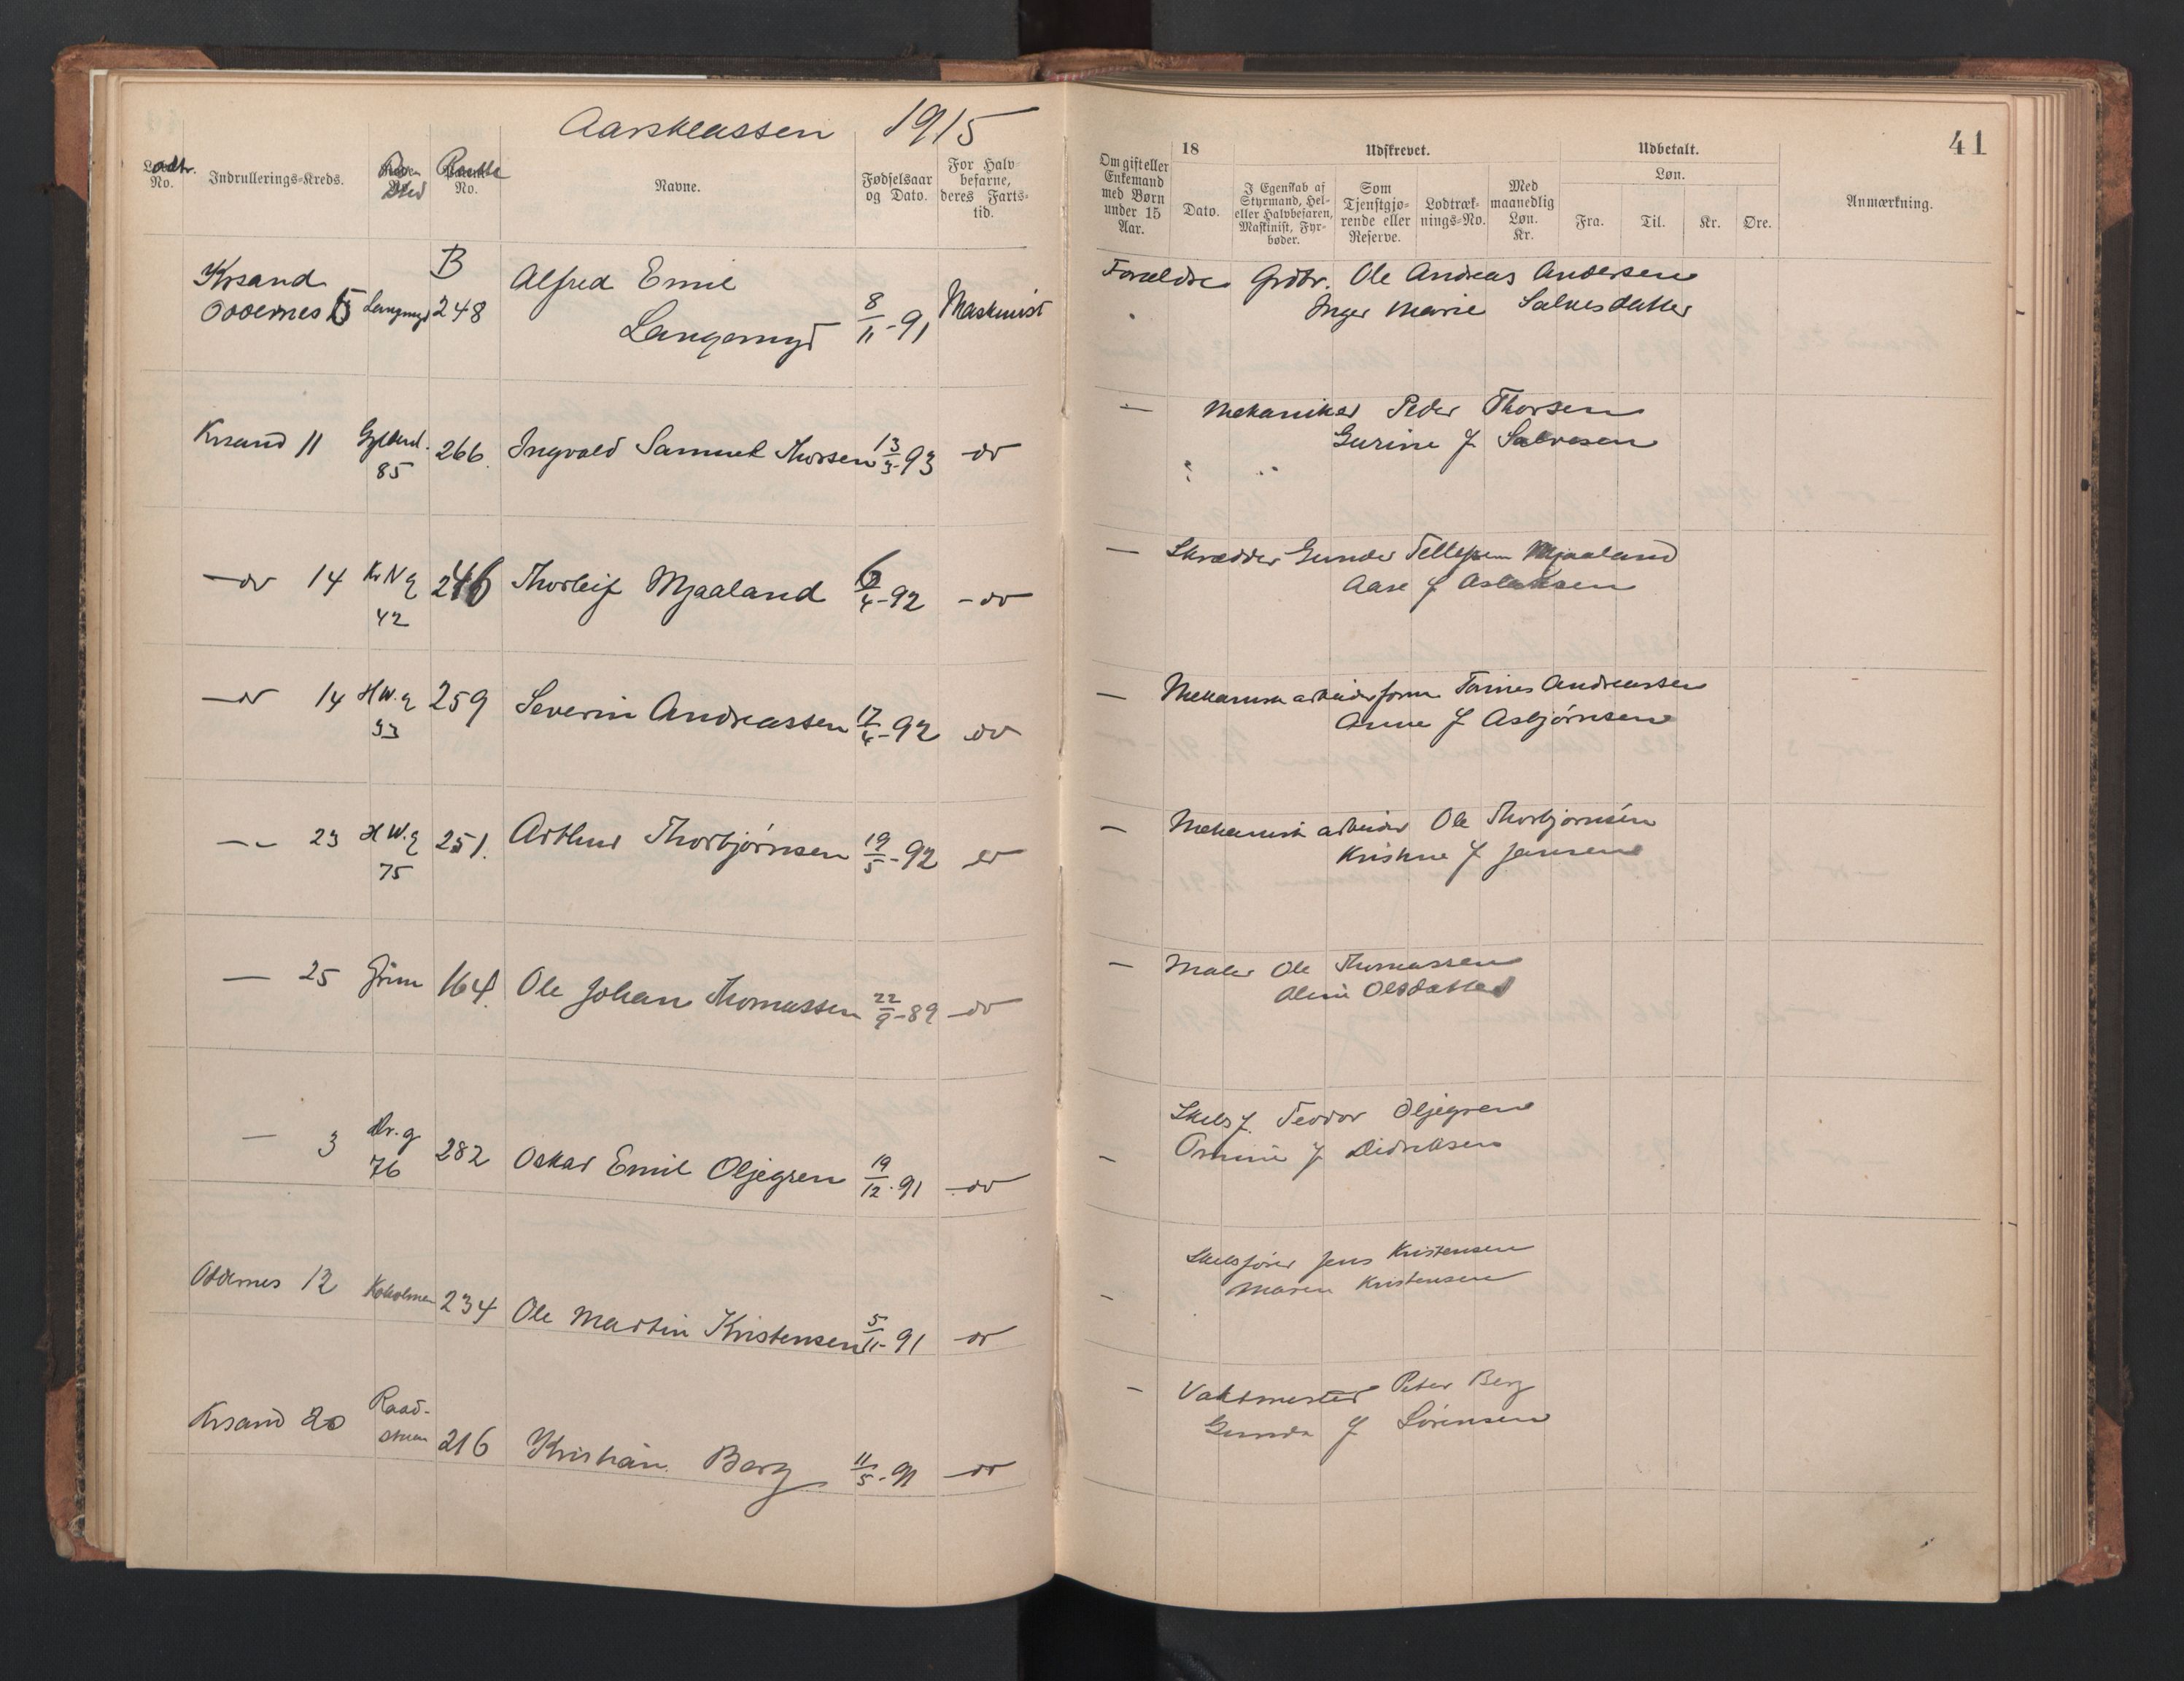 Aarsklassen 1915
41
No.
Indrullerings-Kreds.
No.
Navne.
Fødselsaar og Dato.
For Halvbefarne, deres Fartstid.
Om gift eller Enkemand med Børn under 15 Aar.
18
Dato.
Udskrevet.
I Egenskab af Styrmand, Hel- eller Halvbefaren, Maskinist, Fyrbøder.
Som Tjenstgjørende eller Reserve.
Lodtræknings-No.
Med maanedlig Løn. Kr.
Udbetalt.
Løn.
Fra.
Til.
Kr.
Øre.
Anmærkning.
B
Krsand
Oddernes 5 Langmyr 248 Alfred Emil Langemyr 8/11-91 Maskinist
Forældre Grdbr. Ole Andreas Andersen
Inger Marie Salvesdatter
Krsand 11 Gyldenl. 85 266 Ingvald Samuel Thorsen 13/3-93 do
— Mekaniker Peder Thorsen
Gurine f Salvesen
— do 14 Kr N g 42 246 Thorleif Mjaaland 6/4-92 - do
— Skrædder Gunder Tellefsen Mjaaland
Aase f Aslaksen
— do 14 H W. g 33 259 Severin Andreassen 17/4-92 do
— Mekanisk arbeiderform. Tørnes Andreassen
Anne f Asbjørnsen
— 23 H W. g 75 251. Arthur Thorbjørnsen 19/5-92 do
— Mekanisk arbeider Ole Thorbjørnsen
Kristine f Jensen
— 25 Grim 164. Ole Johan Thomassen 22/9-89 do
— Maler Ole Thomassen
Oline Olsdatter
— 3 Dr. g 76 282 Oskar Emil Oljegren 19/12-91 do
Skibsf. Teodor Oljegren
— Omine f Didriksen
Oddernes 12 Kokolmen 234 Ole Martin Kristensen 5/11-91 do
Skibsfører Jens Kristensen
— Maren Kristensen
Krsand 20 Raadstuen 216 Kristian Berg 11/5-91 do
— Vaktmester Peter Berg
Gunda f Sørensen